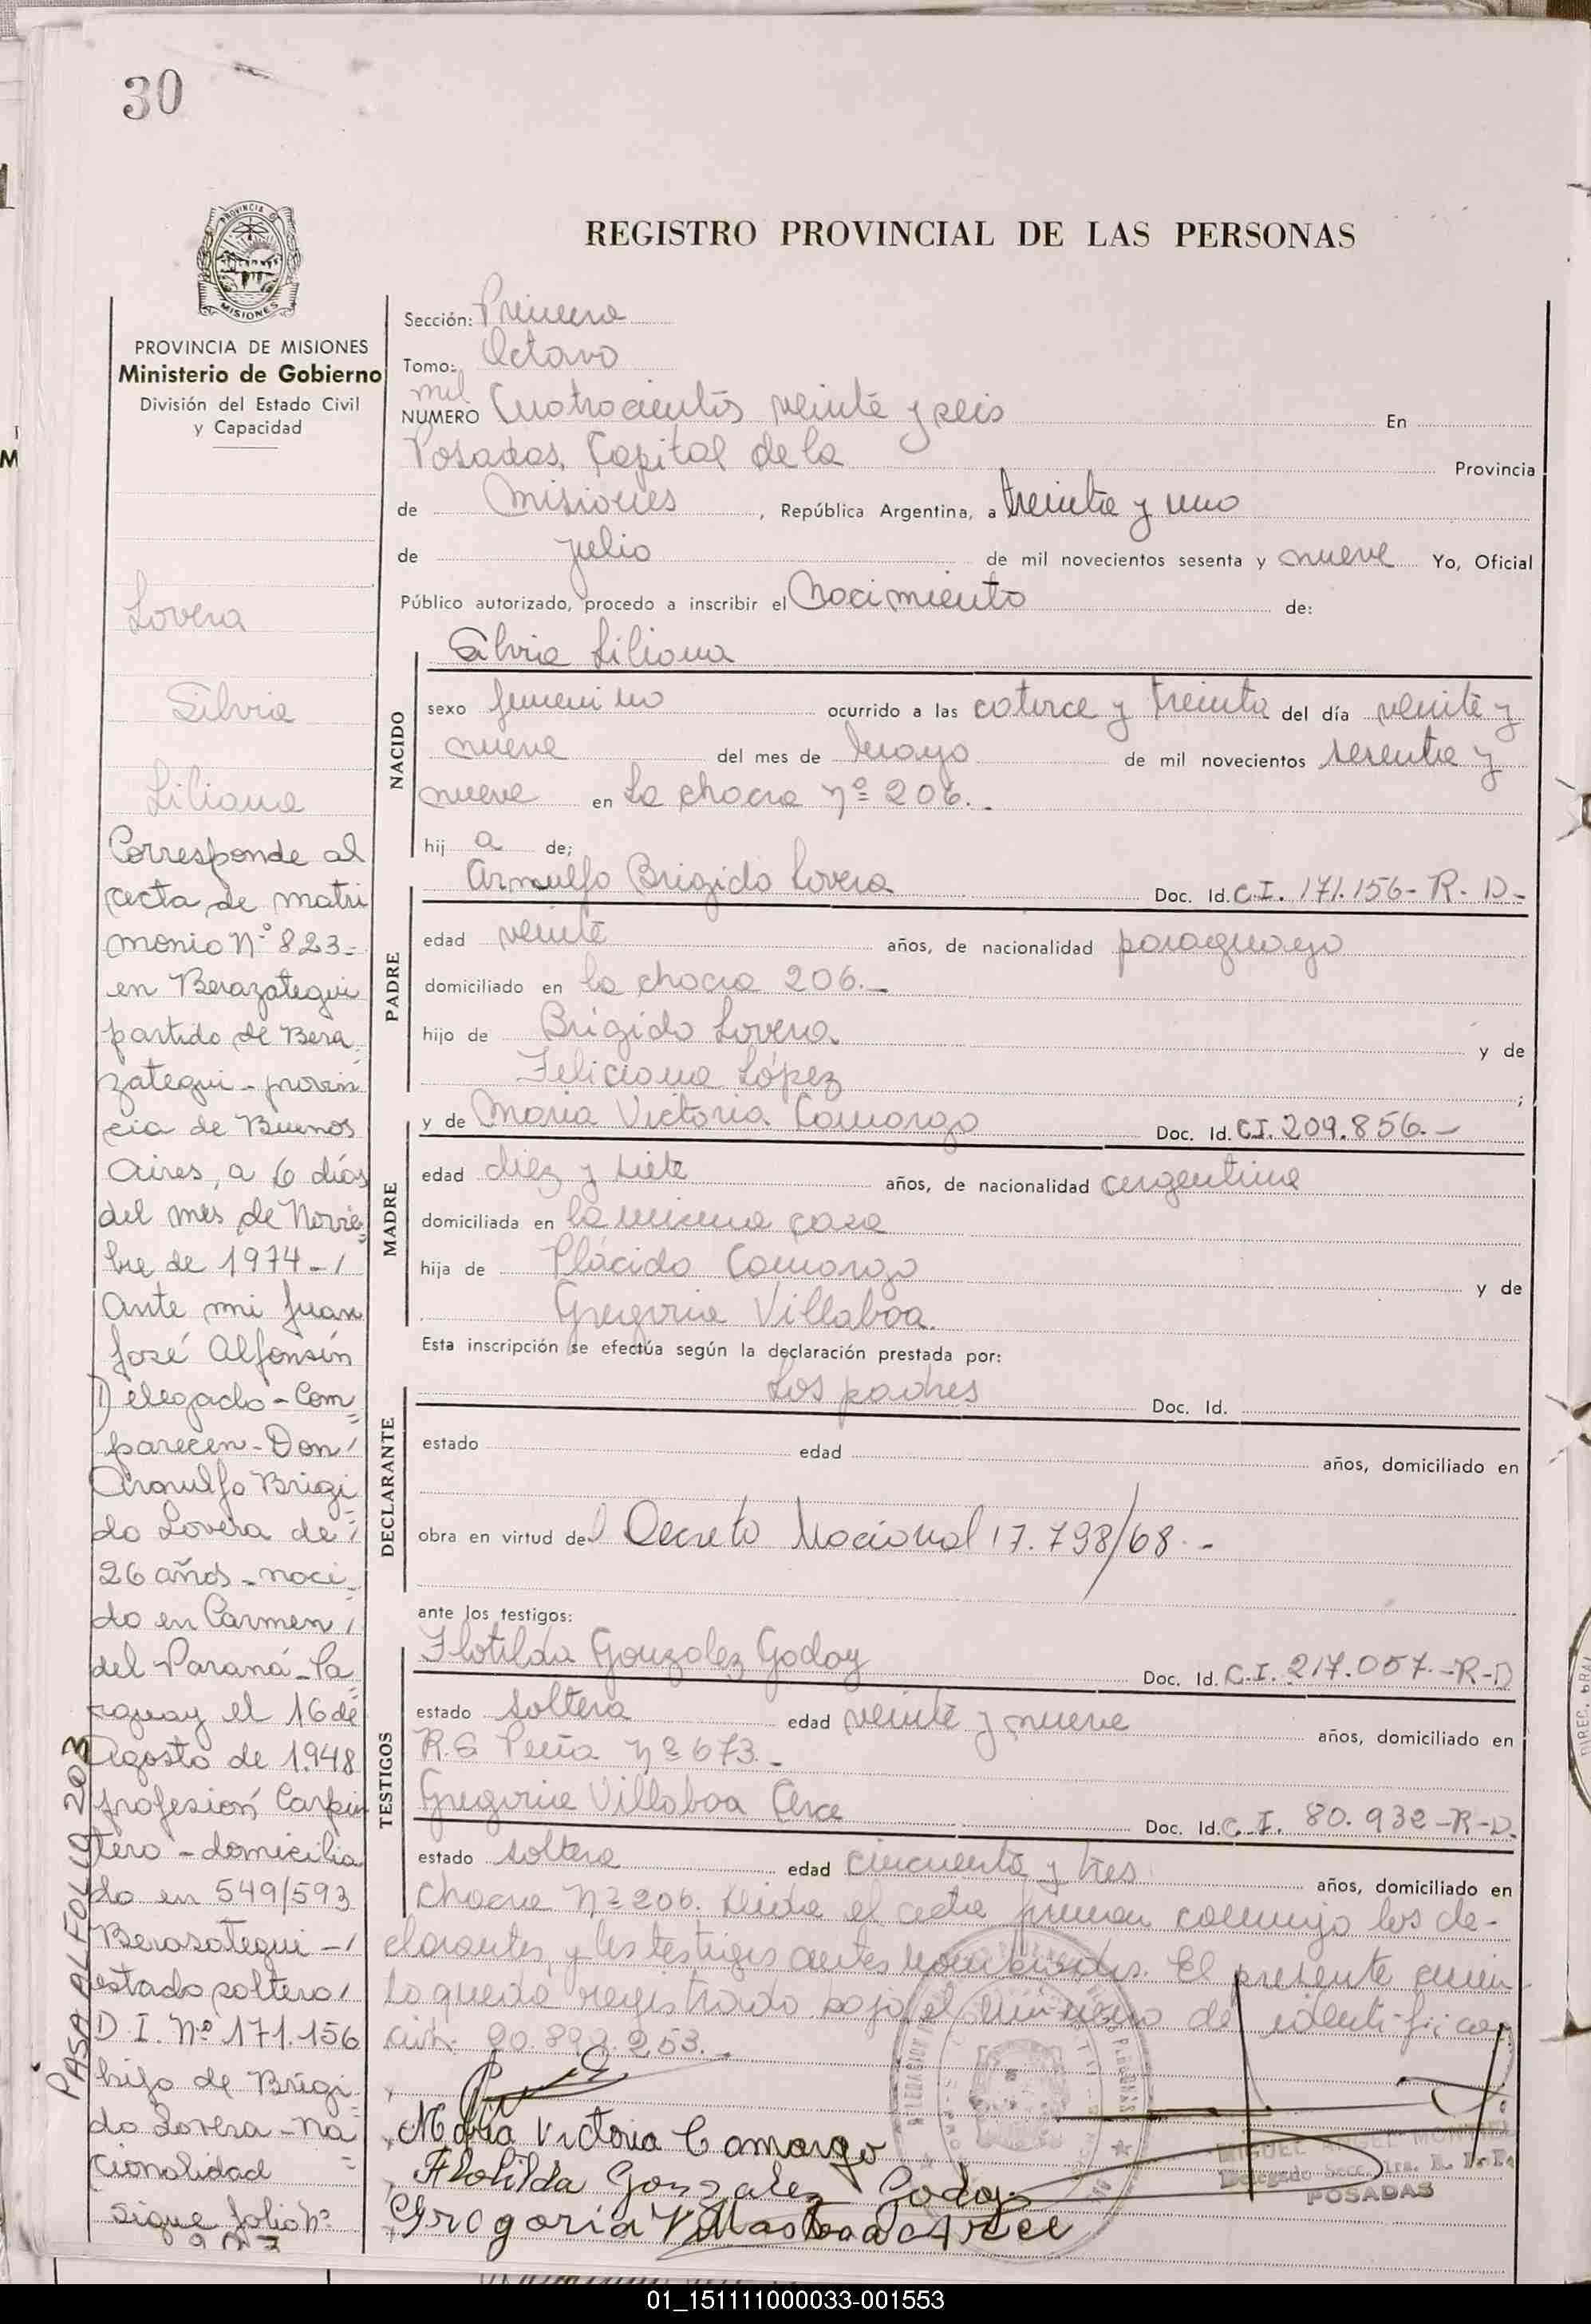 30
PROVINCIA DE
MISIONES
PROVINCIA DE MISIONES
Ministerio de Gobierno
División del Estado Civil
y Capacidad
Lovera
Silvia
Liliana
Corresponde al
acta de matri
monio Nº 823=
en Berazategui
partido de Bera
zategui - provin
cia de Buenos
Aires, a 6 días
del mes de Novie
bre de 1974 - /
Ante mi Juan
José Alfonsín
Delegado - Com
parecen - Don /
Arnulfo Brigi
do Lovera de /
26 años - naci
do en Carmen /
del Paraná - Pa
raguay el 16 de
Agosto de 1.948
profesión Carpin
tero - domicilia
do en 549/593
Berasategui - /
estado soltero /
D I. Nº 171.156
hijo de Brigi
do Lovera - Na
cionalidad
sigue folio Nº
203
PASA AL FOLIO 203
REGISTRO PROVINCIAL DE LAS PERSONAS
Sección: Primera
Tomo: Octavo
mil
NUMERO Cuatrocientos veinte y seis En
Posadas, Capital de la Provincia
de Misiones, República Argentina, a treinta y uno
de julio de mil novecientos sesenta y nueve Yo, Oficial
Público autorizado, procedo a inscribir el Nacimiento de:
Silvia Liliana
NACIDO
sexo femenino ocurrido a las catorce y treinta del día veinte y
nueve del mes de Mayo de mil novecientos sesenta y
nueve en La chacra nº 206.-
hij a de;
Arnulfo Brigido Lovera Doc. Id. C.I. 171.156-R-D-
PADRE
edad veinte años, de nacionalidad paraguayo
domiciliado en la chacra 206.-
hijo de Brigido Lovera y de
Feliciana López ;
y de Maria Victoria Camargo Doc. Id. C.I. 209.856.-
MADRE
edad diez y siete años, de nacionalidad argentina
domiciliada en la misma casa
hija de Plácido Camargo y de
Gregoria Villaboa.
Esta inscripción se efectúa según la declaración prestada por:
Los padres Doc. Id.
DECLARANTE
estado edad años, domiciliado en
obra en virtud del Decreto Nacional 17.798/68.-
ante los testigos:
Flotilda Gonzalez Godoy Doc. Id. C.I. 217.057.-R-D
TESTIGOS
estado soltera edad veinte y nueve años, domiciliado en
R.S Peña nº 673.-
Gregoria Villaboa Arce Doc. Id. C.I. 80.932-R-D.
estado soltera edad cincuenta y tres años, domiciliado en
Chacra Nº 206. Leida el acta firman conmigo los de-
clarantes y los testigos antes nombrados. El presente
queda registrado bajo el número de identifica
ción: 20.892.253.-
Maria Victoria Camargo
Flotilda Gonzalez Godoy
Gregoria Villaboa Arce
MIGUEL ANGEL
Delegado Secc. 1ra.
POSADAS
01_151111000033-001553